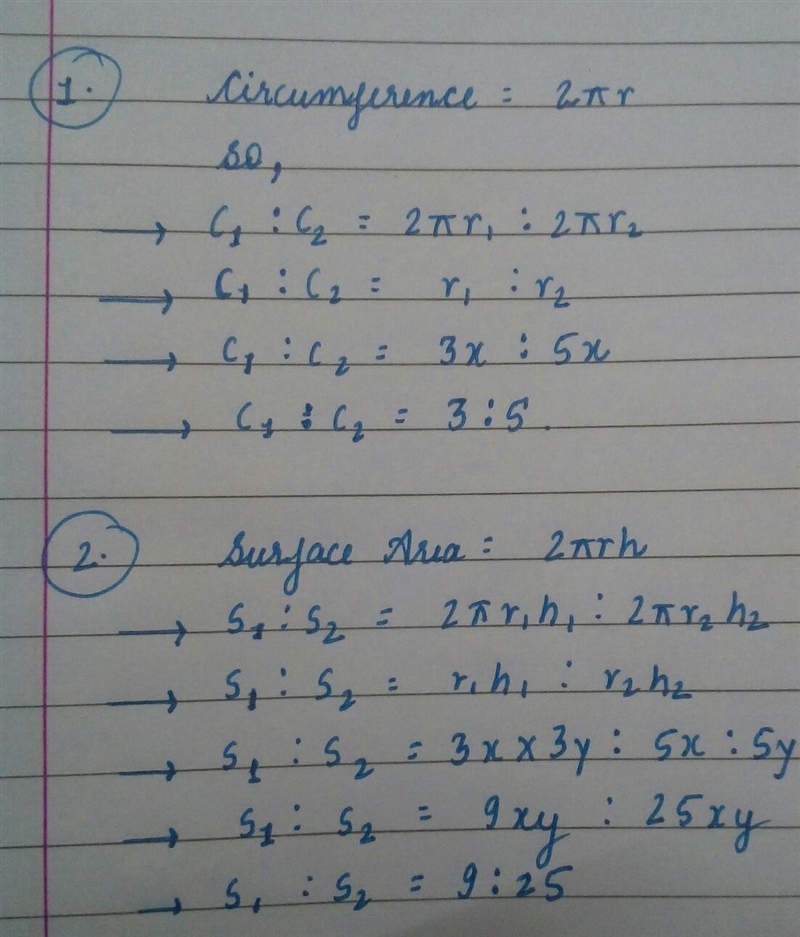 1. Circumference = 2πr
so,
→ C₁ : C₂ = 2πr₁ : 2πr₂
→ C₁ : C₂ = r₁ : r₂
→ C₁ : C₂ = 3x : 5x
→ C₁ : C₂ = 3 : 5.
2. Surface Area = 2πrh
→ S₁ : S₂ = 2πr₁h₁ : 2πr₂h₂
→ S₁ : S₂ = r₁h₁ : r₂h₂
→ S₁ : S₂ = 3x × 3y : 5x : 5y
→ S₁ : S₂ = 9xy : 25xy
→ S₁ : S₂ = 9 : 25